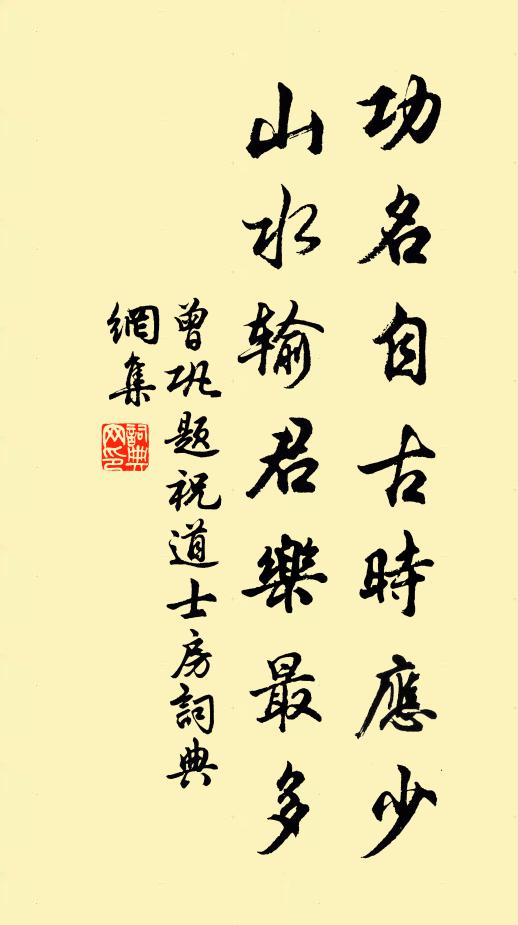 功名自古時應少
山水输君樂最多
曾巩题祝道士房詞典
網集
詞典
网印